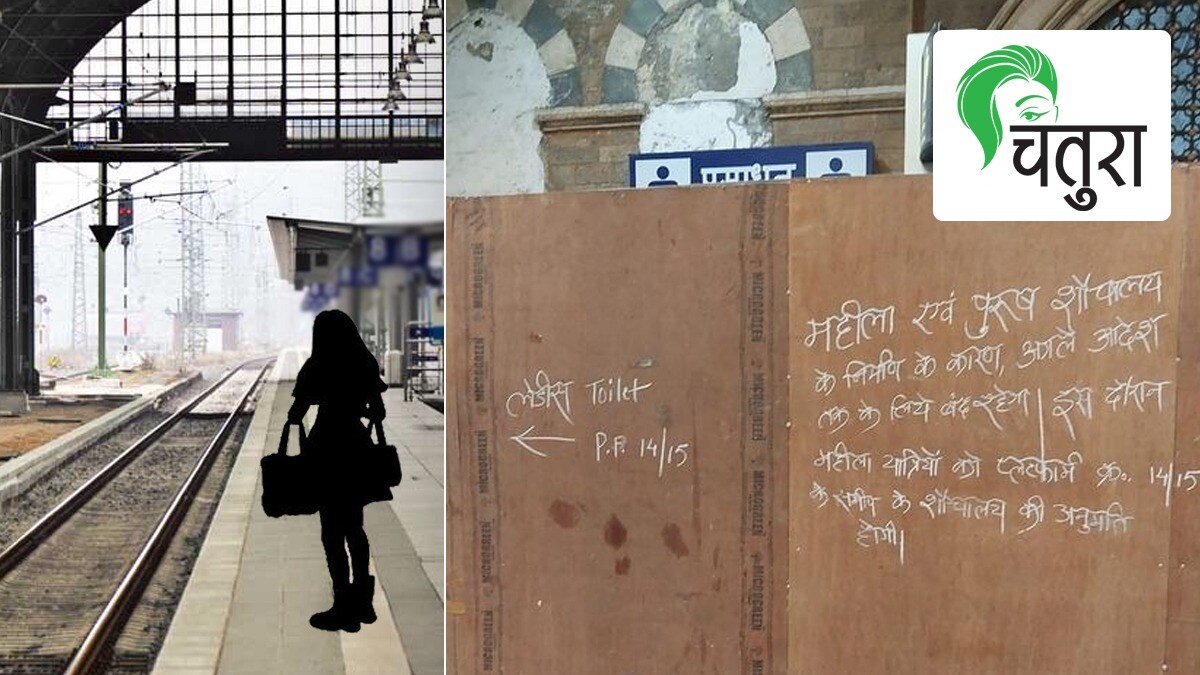 चतुरा
प्रसाधन
महीला एवं पुरूष शौचालय
के निर्माण के कारण, अगले आदेश
तक के लिये बंद रहेगा। इस दौरान
महीला यात्रियों को प्लेटफार्म क्र. 14/15
के समीप के शौचालय की अनुमति
होगी।
लेडीस Toilet
← P.F. 14/15
MICROGREEN
MICROGREEN
MICROGREEN
MICROGREEN
MICROGREEN
MICROGREEN
MICROGREEN
MICROGREEN